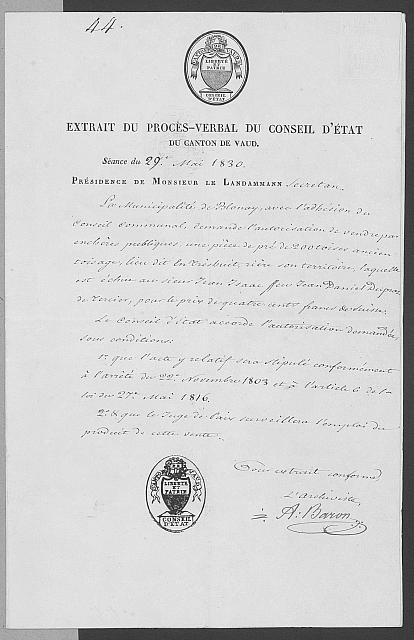 44.
CANTON DE VAUD
LIBERTÉ
ET
PATRIE
CONSEIL
D'ÉTAT
EXTRAIT DU PROCÈS-VERBAL DU CONSEIL D'ÉTAT
DU CANTON DE VAUD.
Séance du 29e Mai 1830.
PRÉSIDENCE DE MONSIEUR LE LANDAMMANN Secretan.
La Municipalité de Blonay, avec l'adhésion du
Conseil Communal, demande l'autorisation de vendre par
enchères publiques, une pièce de pré de 200 toises ancien
toisage, lieu dit en rière son territoire, laquelle
est échue au sieur Jean Isaac ffeu Jean Daniel Dupraz
de Tercier, pour le prix de quatre cents francs de Suisse.
Le Conseil d'état accorde l'autorisation demandée,
sous conditions:
1o que l'acte y relatif sera stipulé conformément
à l'arrêté du 22e Novembre 1803 et à l'article 6 de la
loi du 27e Mai 1816.
2o & que le Juge de Paix surveillera l'emploi du
produit de cette vente.
Pour extrait conforme,
L'archiviste,
A: Baron
LIBERTÉ
ET
PATRIE
CONSEIL
D'ÉTAT